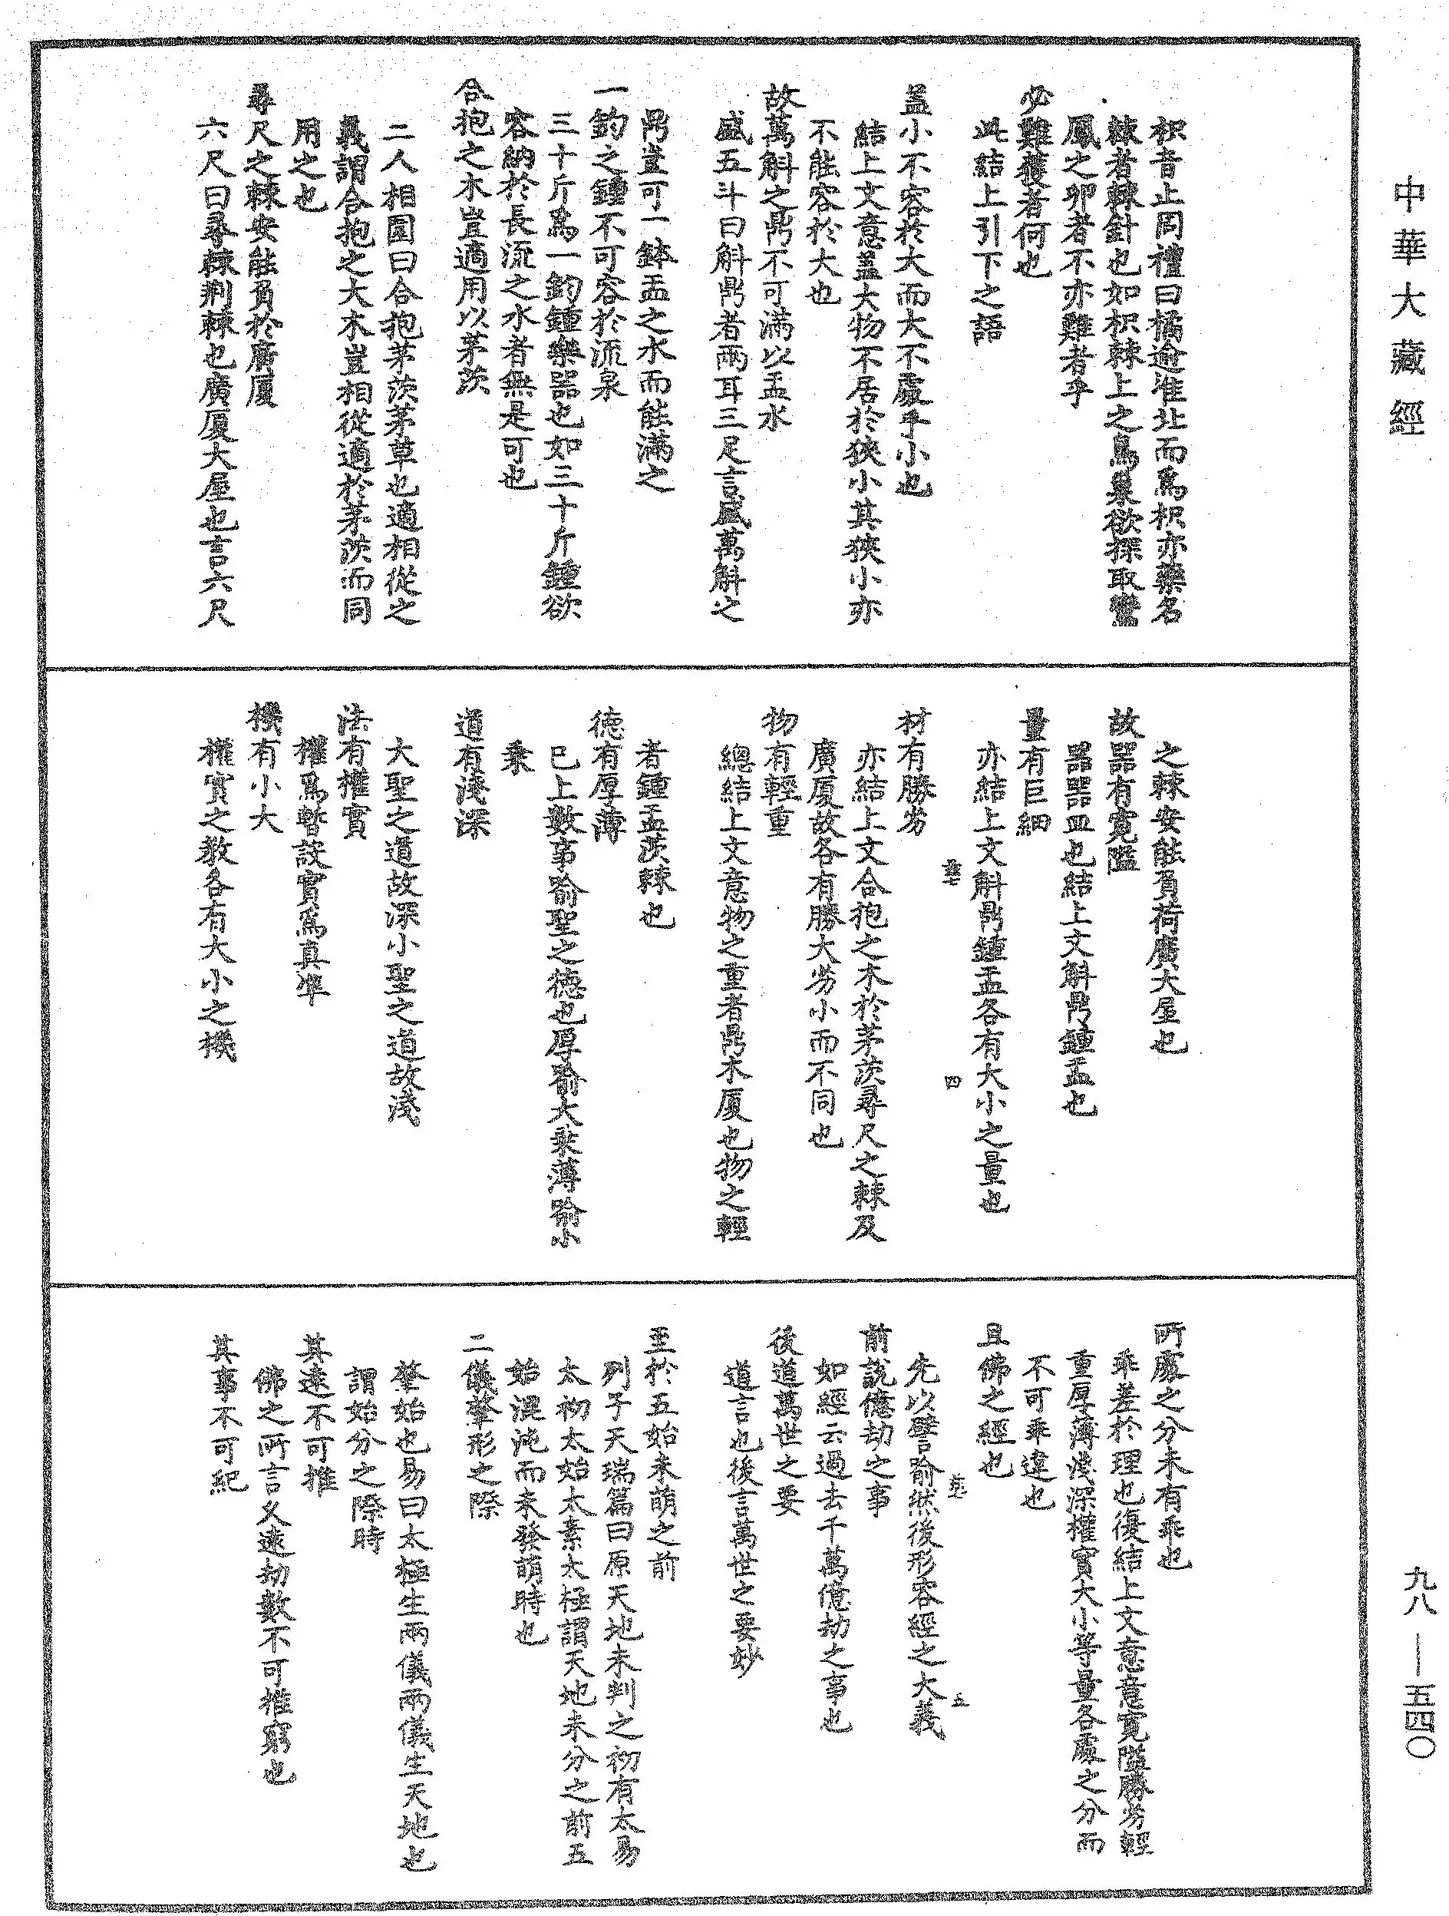 中華大藏經
枳音止周禮曰橘逾淮北而爲枳亦藥名
棘者棘針也如枳棘上之鳥巢欲探取鸞
鳳之卵者不亦難者乎
必難獲者何也
此結上引下之語
蓋小不容於大而大不處乎小也
結上文意蓋大物不居於狹小其狹小亦
不能容於大也
故萬斛之鼎不可滿以盂水
盛五斗曰斛鼎者兩耳三足言盛萬斛之
鼎豈可一鉢盂之水而能滿之
一鈞之鍾不可容於流泉
三十斤爲一鈞鍾樂器也如三十斤鍾欲
容納於長流之水者無是可也
合抱之木豈適用以茅茨
二人相圍曰合抱茅茨茅草也適相從之
義謂合抱之大木豈相從適於茅茨而同
用之也
尋尺之棘安能負於廣厦
六尺曰尋棘荆棘也廣厦大屋也言六尺
之棘安能負荷廣大屋也
故器有寬隘
器器皿也結上文斛鼎鍾盂也
量有巨細
亦結上文斛鼎鍾盂各有大小之量也
材有勝劣
亦結上文合抱之木於茅茨尋尺之棘及
廣厦故各有勝大劣小而不同也
物有輕重
總結上文意物之重者鼎木厦也物之輕
者鍾盂茨棘也
德有厚薄
已上數事喻聖之德也厚喻大乘薄喻小
乘
道有淺深
大聖之道故深小聖之道故淺
法有權實
權爲暫設實爲真準
機有小大
權實之教各有大小之機
四
所處之分未有乖也
乖差於理也復結上文意意寬隘勝劣輕
重厚薄淺深權實大小等量各處之分而
不可乖違也
且佛之經也
先以譬喻然後形容經之大義
五
前說億劫之事
如經云過去千萬億劫之事也
後道萬世之要
道言也後言萬世之要妙
至於五始未萌之前
列子天瑞篇曰原天地未判之初有太易
太初太始太素太極謂天地未分之前五
始混沌而未發萌時也
二儀肇形之際
肇始也易曰太極生兩儀兩儀生天地也
謂始分之際時
其遠不可推
佛之所言久遠劫數不可推窮也
其事不可紀
九八—五四〇